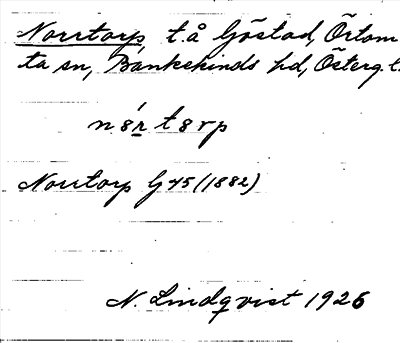 Norrtorp, t.å Göstad, Örtom
ta sn, Bankekinds hd, Österg. l.
Norrtorp G 45 (1882)
N. Lindqvist 1926